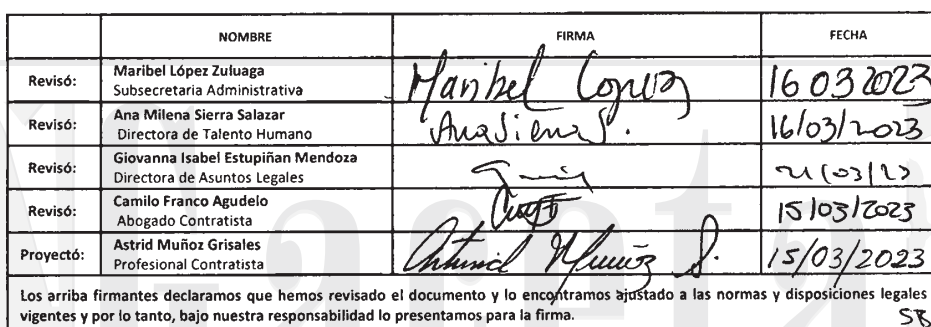 NOMBRE FIRMA FECHA
Revisó: Maribel López Zuluaga
Subsecretaria Administrativa
Maribel Lopez 16 03 2023
Revisó: Ana Milena Sierra Salazar
Directora de Talento Humano
Ana Sierra S. 16/03/2023
Revisó: Giovanna Isabel Estupiñan Mendoza
Directora de Asuntos Legales
21/03/23
Revisó: Camilo Franco Agudelo
Abogado Contratista
15/03/2023
Proyectó: Astrid Muñoz Grisales
Profesional Contratista
Muñoz 15/03/2023
Los arriba firmantes declaramos que hemos revisado el documento y lo encontramos ajustado a las normas y disposiciones legales
vigentes y por lo tanto, bajo nuestra responsabilidad lo presentamos para la firma.
SB